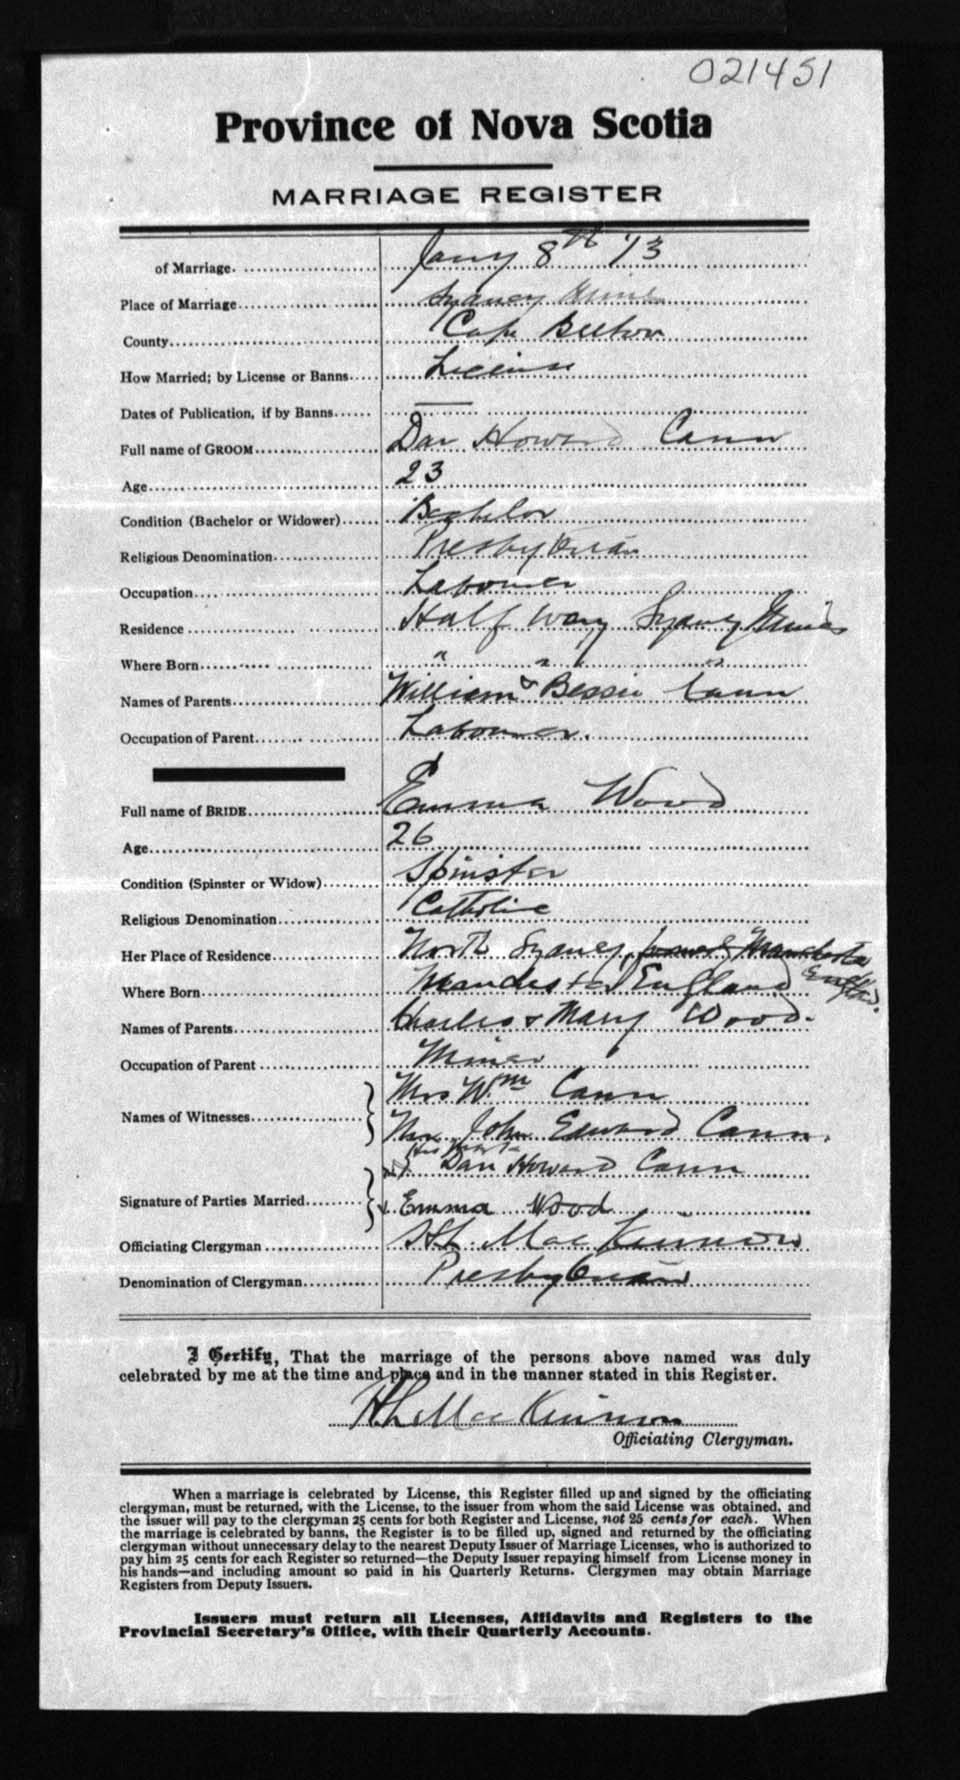 021451
Province of Nova Scotia
MARRIAGE REGISTER
of Marriage. Jany 8th 13
Place of Marriage Sydney Mines
County Cape Breton
How Married; by License or Banns License
Dates of Publication, if by Banns
Full name of GROOM Dan Howard Cann
Age 23
Condition (Bachelor or Widower) Bachelor
Religious Denomination Presbyterian
Occupation Labourer
Residence Half Way Sydney Mines
Where Born " " "
Names of Parents William & Bessie Cann
Occupation of Parent Labourer.
Full name of BRIDE Emma Wood
Age 26
Condition (Spinster or Widow) Spinster
Religious Denomination Catholic
Her Place of Residence North Sydney, Manchester
England.
Where Born Manchester England
Names of Parents Charles & Mary Wood.
Occupation of Parent Miner
Mrs Wm Cann
Names of Witnesses
John Edward Cann.
his mark
Dan Howard Cann
Signature of Parties Married Emma Wood
Officiating Clergyman MacKinnon
Denomination of Clergyman Presbyterian
I Certify, That the marriage of the persons above named was duly
celebrated by me at the time and place and in the manner stated in this Register.
MacKinnon
Officiating Clergyman.
When a marriage is celebrated by License, this Register filled up and signed by the officiating
clergyman, must be returned, with the License, to the issuer from whom the said License was obtained, and
the issuer will pay to the clergyman 25 cents for both Register and License, not 25 cents for each. When
the marriage is celebrated by banns, the Register is to be filled up, signed and returned by the officiating
clergyman without unnecessary delay to the nearest Deputy Issuer of Marriage Licenses, who is authorized to
pay him 25 cents for each Register so returned—the Deputy Issuer repaying himself from License money in
his hands—and including amount so paid in his Quarterly Returns. Clergymen may obtain Marriage
Registers from Deputy Issuers.
Issuers must return all Licenses, Affidavits and Registers to the
Provincial Secretary's Office, with their Quarterly Accounts.